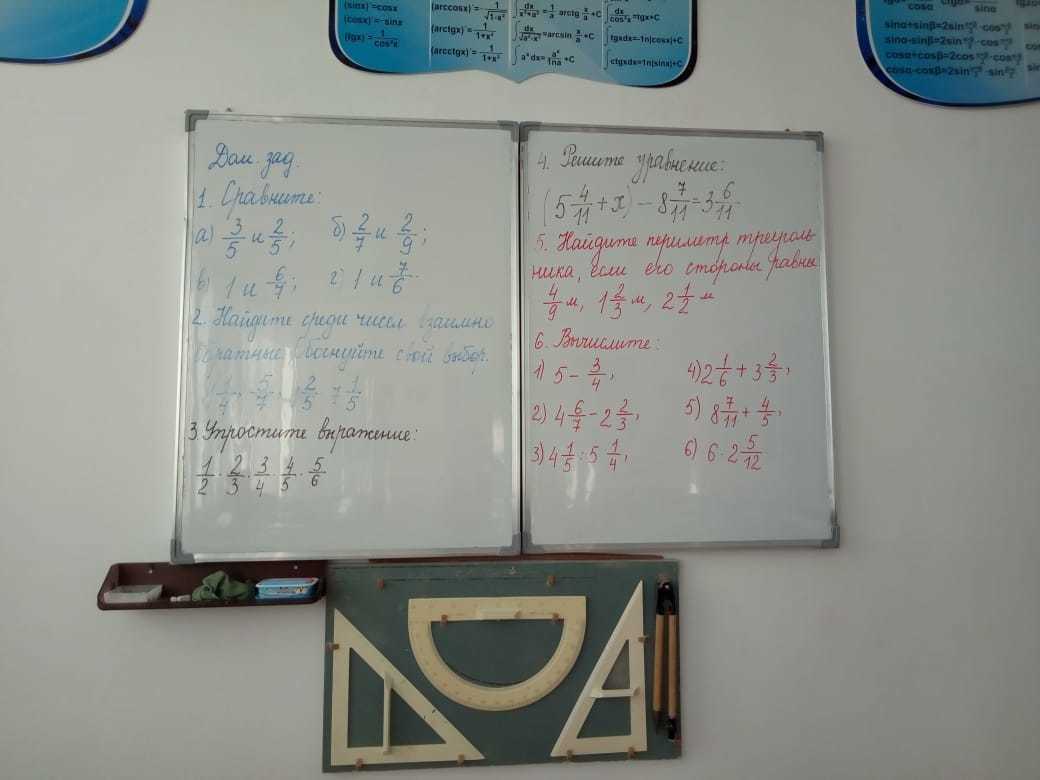 (sinx)'=cosx
(cosx)'=-sinx
(tgx)'=1/cos²x
(arccosx)'=-1/√1-x²
(arctgx)'=1/1+x²
(arcctgx)'=-1/1+x²
∫dx/x²+a²=1/a arctg x/a+C
=arcsin x/a+C
∫aˣdx=aˣ/1na+C
∫dx/cos²x=tgx+C
∫tgxdx=-1n|cosx|+C
∫ctgxdx=1n|sinx|+C
sinα+sinβ=2sin·cos
sinα-sinβ=2sin·cos
cosα+cosβ=2cos·cos
cosα-cosβ=2sin·sin
Дом. зад.
1. Сравните:
а) 3/5 и 2/5; б) 2/7 и 2/9;
в) 1 и 6/7; г) 1 и 7/6.
2. Найдите среди чисел взаимно
обратные. Обоснуйте свой выбор.
5/7 2/5 7 1/5
3 Упростите выражение:
1/2 · 2/3 · 3/4 · 4/5 · 5/6
4. Решите уравнение:
(5 4/11 + x) - 8 7/11 = 3 6/11.
5. Найдите периметр треуголь-
ника, если его стороны равны
4/9 м, 1 2/3 м, 2 1/2 м
6. Вычислите:
1) 5 - 3/4; 4) 2 1/6 + 3 2/3;
2) 4 6/7 - 2 2/3; 5) 8 7/11 + 4/5;
3) 4 1/5 : 5 1/4; 6) 6 · 2 5/12